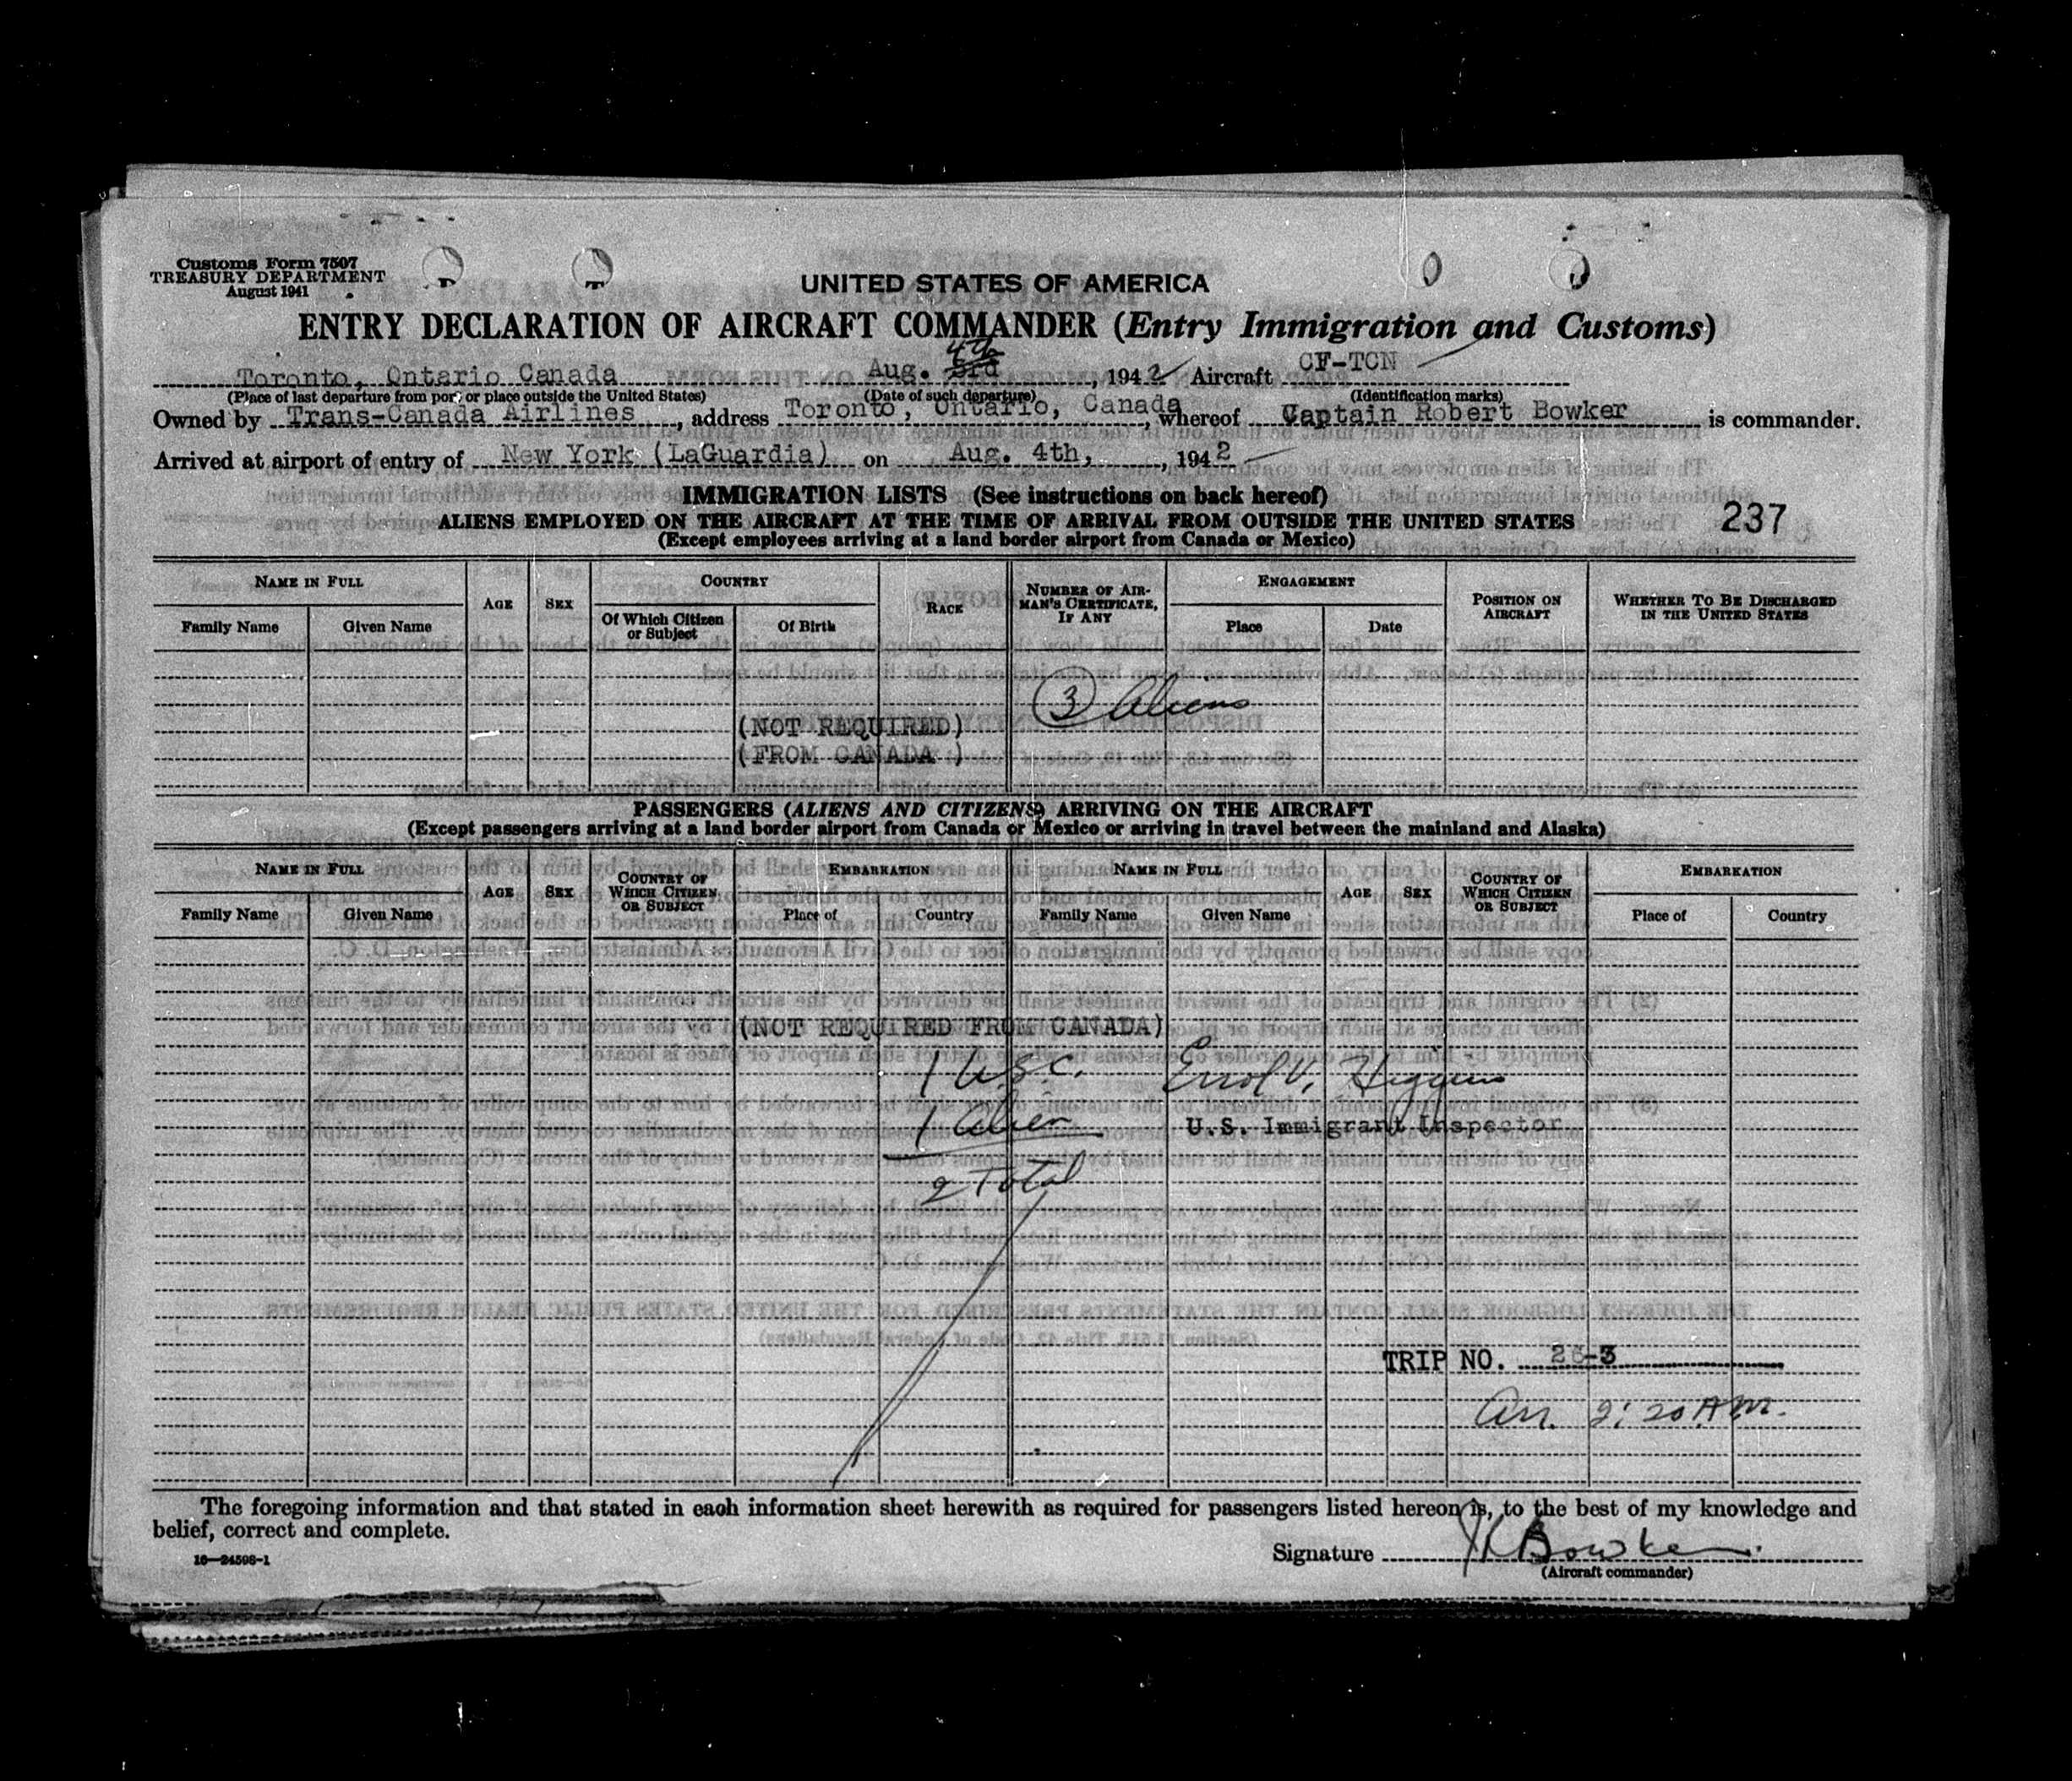 Customs Form 7507
TREASURY DEPARTMENT
August 1941
UNITED STATES OF AMERICA
ENTRY DECLARATION OF AIRCRAFT COMMANDER (Entry Immigration and Customs)
Toronto, Ontario Canada Aug. 3rd 4th, 1942 Aircraft CF-TCN
(Place of last departure from port or place outside the United States) (Date of such departure) (Identification marks)
Owned by Trans-Canada Airlines, address Toronto, Ontario, Canada, whereof Captain Robert Bowker is commander.
Arrived at airport of entry of New York (LaGuardia) on Aug. 4th, 1942
IMMIGRATION LISTS (See instructions on back hereof)
ALIENS EMPLOYED ON THE AIRCRAFT AT THE TIME OF ARRIVAL FROM OUTSIDE THE UNITED STATES 237
(Except employees arriving at a land border airport from Canada or Mexico)
NAME IN FULL AGE SEX COUNTRY RACE NUMBER OF AIRMAN'S CERTIFICATE, IF ANY ENGAGEMENT POSITION ON AIRCRAFT WHETHER TO BE DISCHARGED IN THE UNITED STATES
Family Name Given Name Of Which Citizen or Subject Of Birth Place Date
3 Aliens
(NOT REQUIRED)
(FROM CANADA )
PASSENGERS (ALIENS AND CITIZENS) ARRIVING ON THE AIRCRAFT
(Except passengers arriving at a land border airport from Canada or Mexico or arriving in travel between the mainland and Alaska)
NAME IN FULL AGE SEX COUNTRY OF WHICH CITIZEN OR SUBJECT EMBARKATION NAME IN FULL AGE SEX COUNTRY OF WHICH CITIZEN OR SUBJECT EMBARKATION
Family Name Given Name Place of Country Family Name Given Name Place of Country
(NOT REQUIRED FROM CANADA)
1 U.S.C. Errol V. Higgins
1 Alien U.S. Immigrant Inspector
2 Total
TRIP NO. 26-3
Arr. 2:20 A.M.
The foregoing information and that stated in each information sheet herewith as required for passengers listed hereon is, to the best of my knowledge and
belief, correct and complete.
Signature R Bowker
16—24598-1 (Aircraft commander)